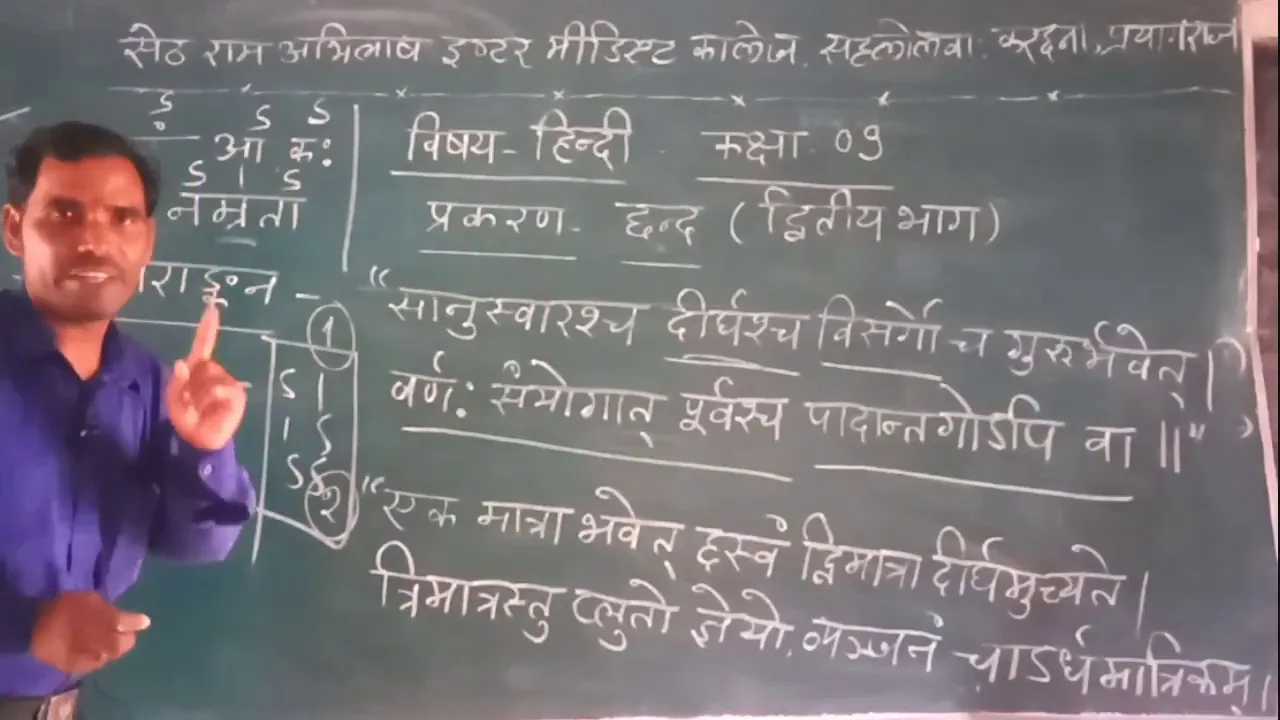 सेठ राम अभिलाष इण्टर मीडिएट कालेज, सहलोलवा. करछना, प्रयागराज
ऽ ऽ ऽ
आ कः
ऽ । ऽ
नम्रता
विषय - हिन्दी कक्षा 09
प्रकरण - छन्द ( द्वितीय भाग )
1
"सानुस्वारश्च दीर्घश्च विसर्गो च गुरुर्भवेत् ।
वर्णः संयोगात् पूर्वश्च पादान्तगोऽपि वा ॥"
ऽ ।
। ऽ
ऽ ऽ
2
"एक मात्रा भवेत् ह्रस्वं द्विमात्रा दीर्घमुच्यते ।
त्रिमात्रस्तु प्लुतो ज्ञेयो, व्यञ्जनं चाऽर्धमात्रिकम् ।